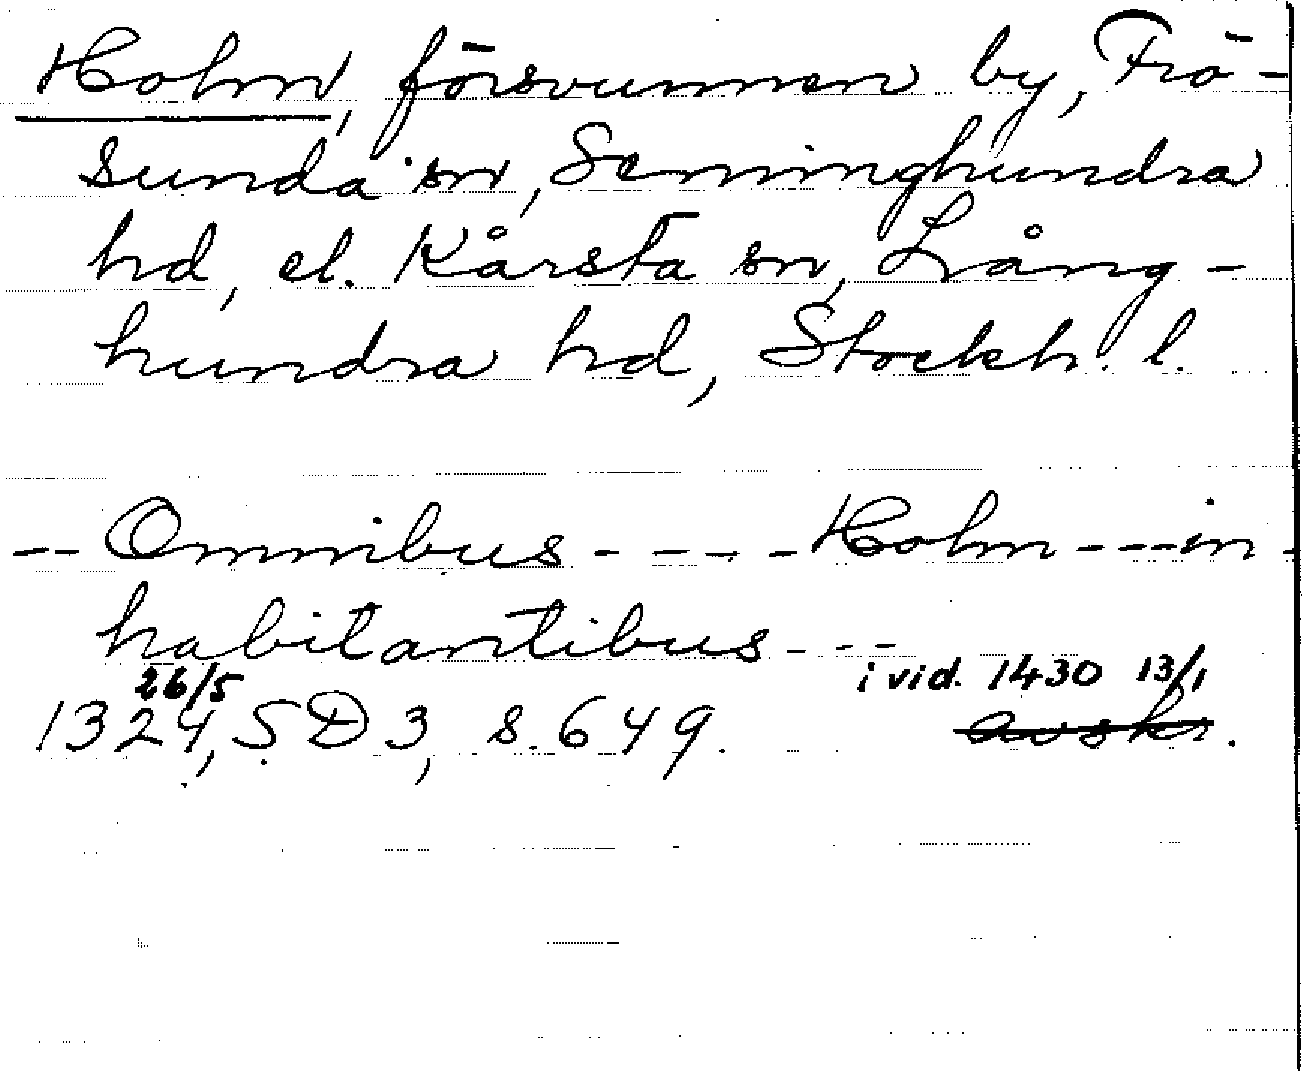 Holm, försvunnen by, Frö-
sunda sn, Seminghundra
hd, el. Kårsta sn, Lång-
hundra hd, Stockh. l.
-- Omnibus ---- Holm --- in-
habitantibus ---
26/5 i vid. 1430 13/1
1324, SD 3, s. 649. avskr.